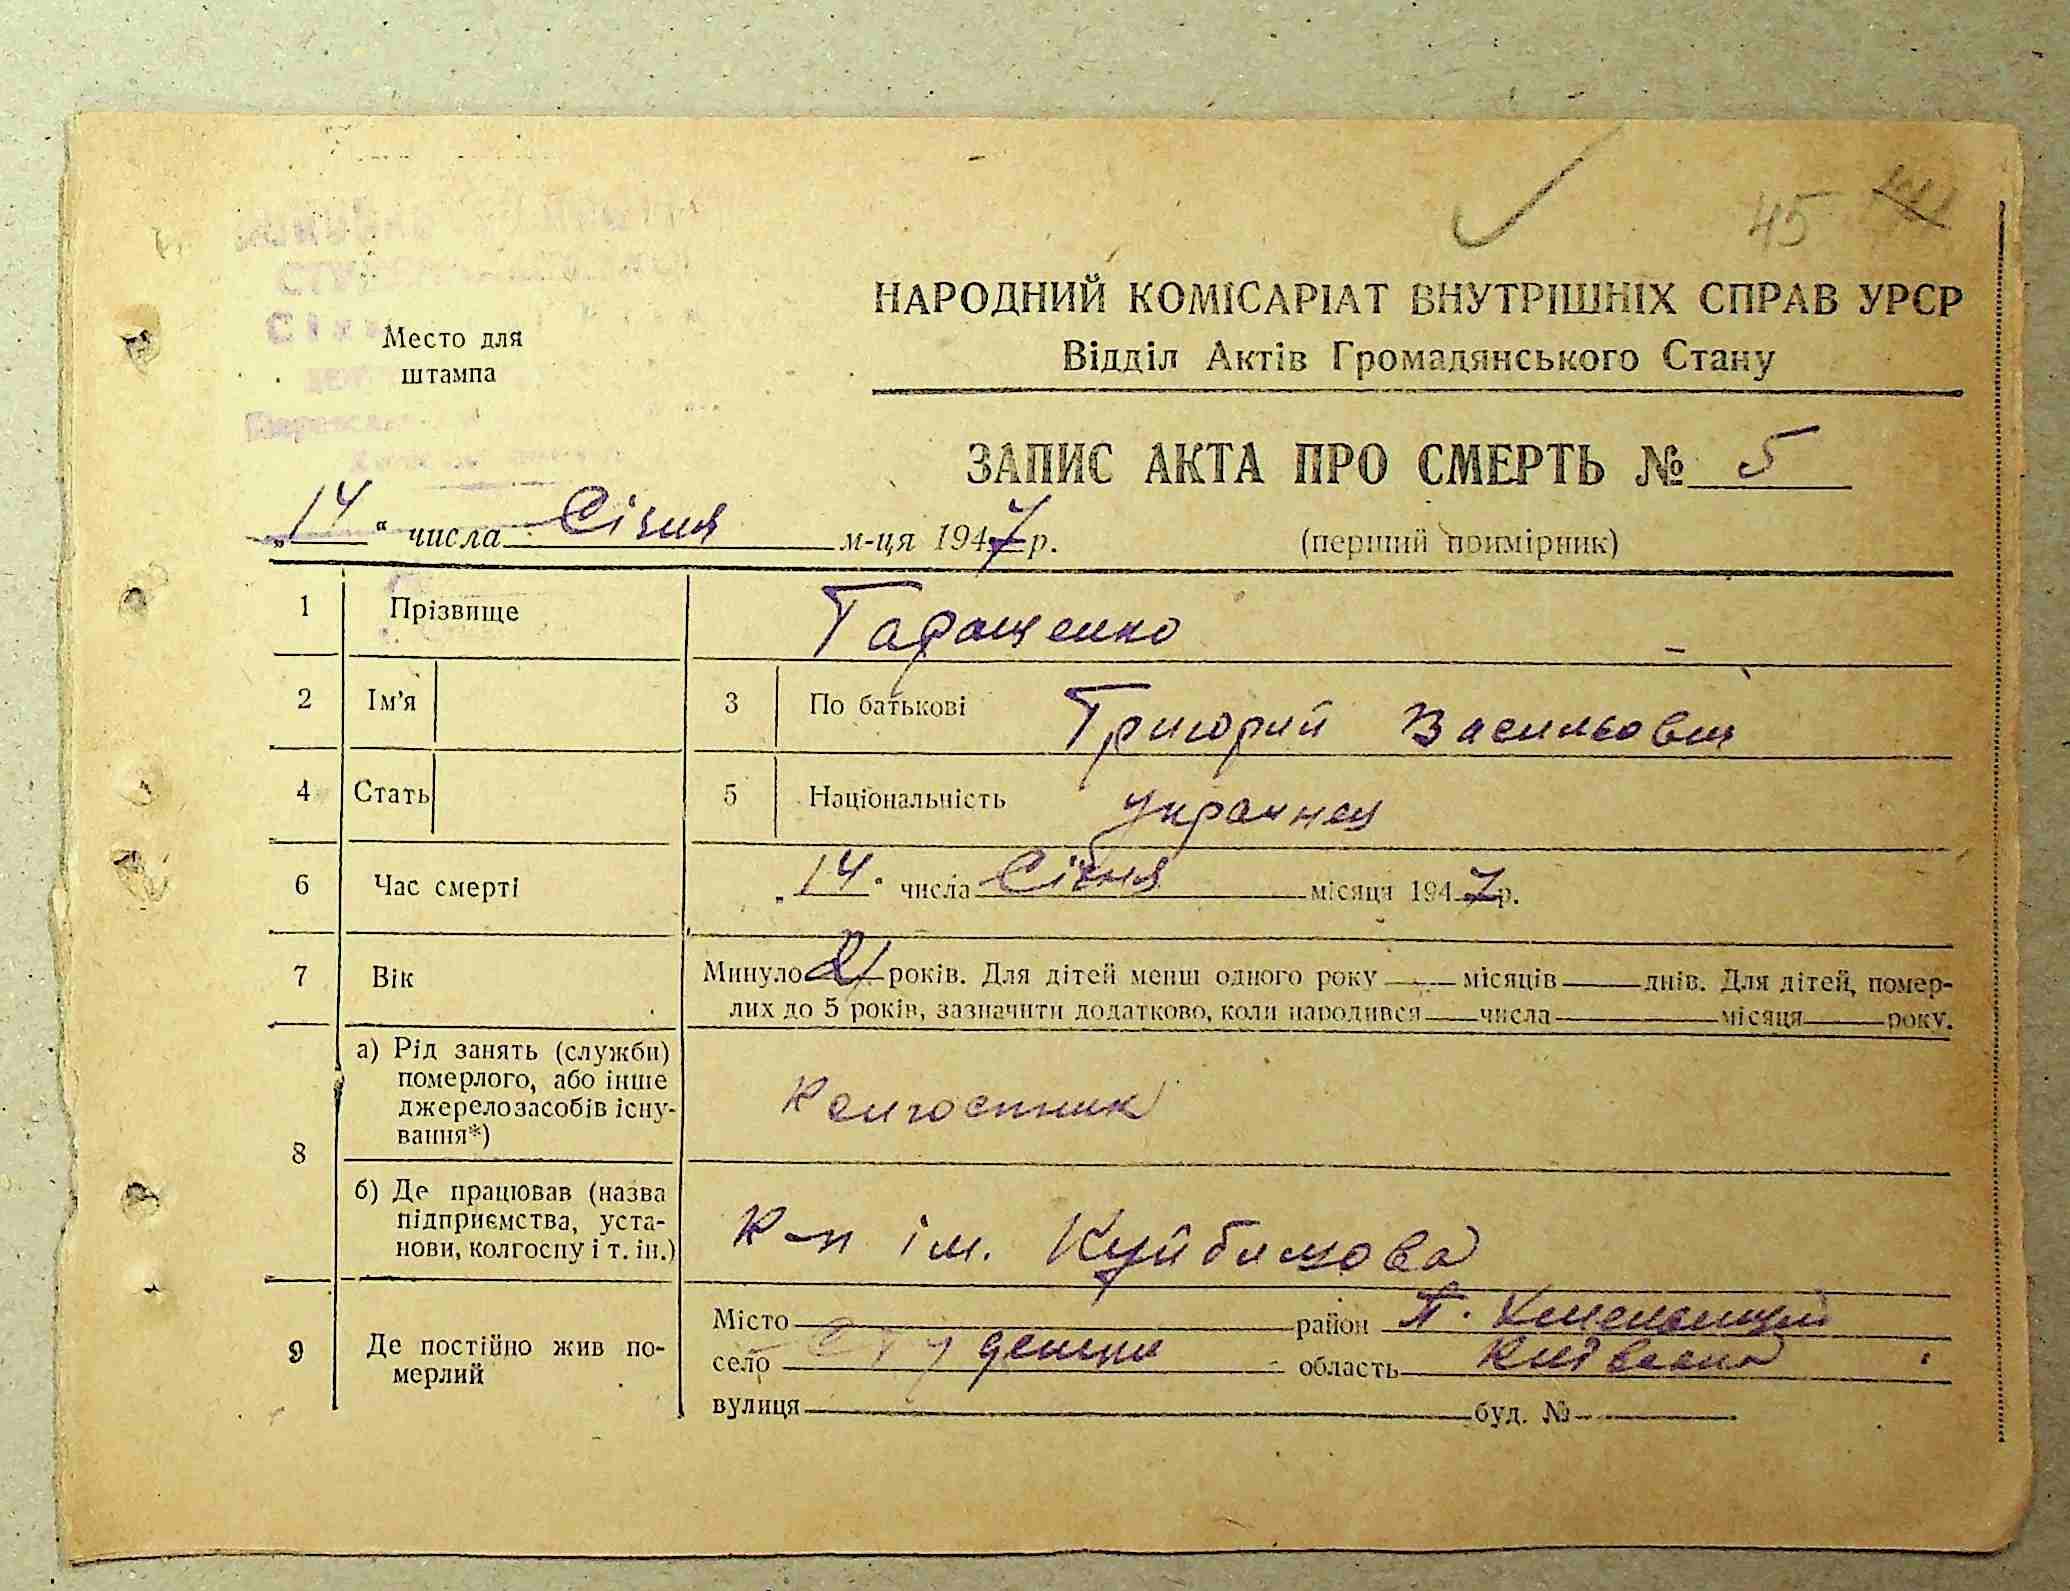 45
НАРОДНИЙ КОМІСАРІАТ ВНУТРІШНІХ СПРАВ УРСР
Відділ Актів Громадянського Стану
Место для
штампа
ЗАПИС АКТА ПРО СМЕРТЬ № 5
„14“ числа Січня м-ця 1947 р.
(перший примірник)
1 Прізвище Таращенко
2 Ім'я 3 По батькові Григорий Васильович
4 Стать 5 Національність украинец
6 Час смерті „14“ числа Січня місяця 1947 р.
7 Вік Минуло 21 років. Для дітей менш одного року місяців днів. Для дітей, помер-
лих до 5 років, зазначити додатково, коли народився числа місяця року.
8 а) Рід занять (служби)
померлого, або інше
джерело засобів існу-
вання*)
Колгоспник
б) Де працював (назва
підприємства, уста-
нови, колгоспу і т. ін.)
К-п ім. Куйбишова
9 Де постійно жив по-
мерлий
Місто район П. Хмельницкий
село Студеники область Київська
вулиця буд. №